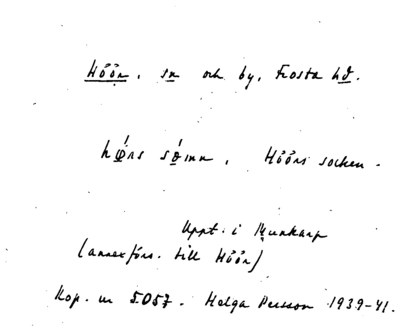 Höör, sn och by, Frosta hd.
hǿ̨rs sǿmn, Höörs socken.
Uppt. i Munkarp
(annexförs. till Höör)
Kop. ur 5057. Helga Persson 1939-41.